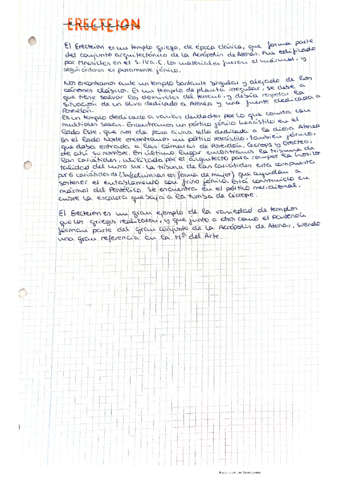 ERECTEION
El Erecteion es un templo griego, de época clásica, que forma parte
del conjunto arquitectónico de la Acrópolis de Atenas. Fue edificado
por Mnesicles en el S. IV a.C. Los materiales fueron el mármol, y
según órdenes es puramente jónico.
Nos encontramos ante un templo bastante singular y alejado de los
cánones clásicos. Es un templo de planta irregular, se debe a
que tiene salvar los desniveles del terreno, y debía respetar la
situación de un olivo dedicado a Atenea y una fuente dedicada a
Poseidón.
Es un templo dedicado a varias deidades por lo que cuenta con
multiples salas. Encontramos un pórtico jónico hexástilo en el
lado Este, que nos da paso a una cella dedicada a la diosa Atenea
en el lado Norte encontramos un pórtico tetrástilo, también jónico,
que daba entrada a las cámaras de Poseidón, Cecrops y Erecteo,
de ahí su nombre. En último lugar encontramos la tribuna de
las cariátides, utilizada por el arquitecto para romper la
del muro sur. La tribuna de las cariátides está compuesta
por 6 cariátides (en forma de mujer) que ayudan a
sostener el entablamento con friso jónico. Está construido en
mármol del Pentélico. Se encuentra en el pórtico meridional.
cubre la escalera que baja a la tumba de Cécrope.
El Erecteion es un gran ejemplo de la variedad de templos
que los griegos realizaron, y que junto a otros como el Partenón
forman parte del gran conjunto de la Acrópolis de Atenas, siendo
una gran referencia en la Hª del Arte.